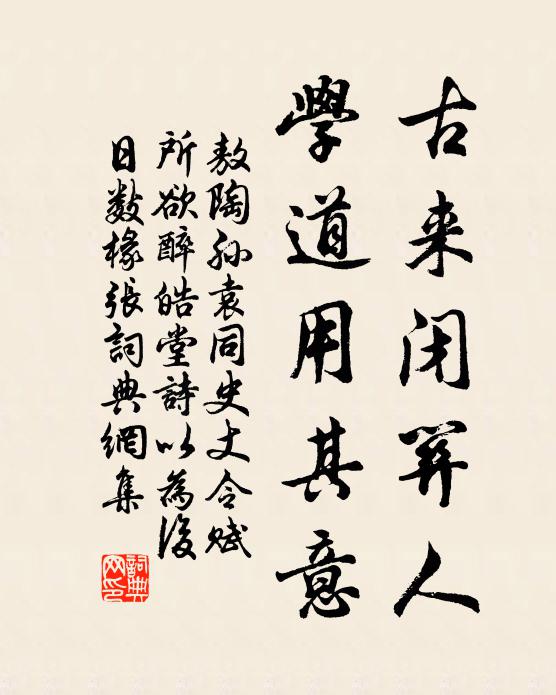 古来闭关人
學道用其意
敖陶孙袁同史丈令赋
所欲醉皓堂詩以為後
日數椽張詞典網集
詞典网印